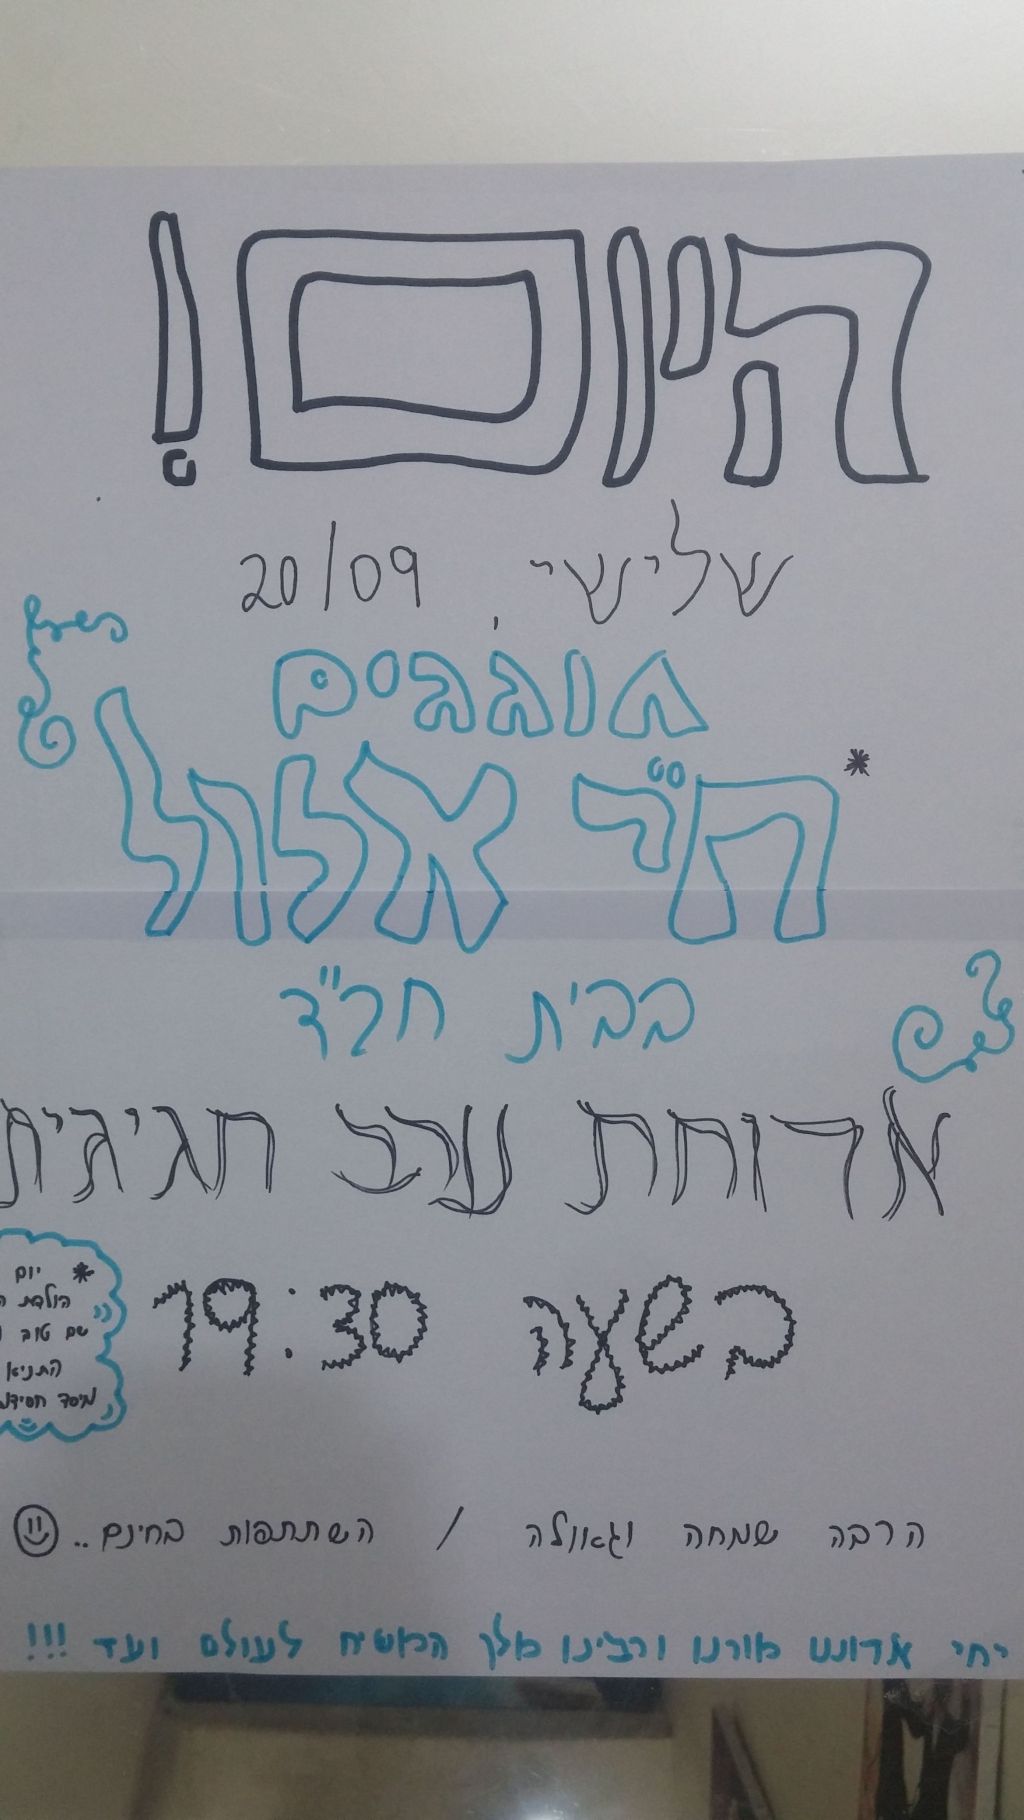 היום!
שלישי, 20/09
חוגגים
ח"י אלול*
בבית חב"ד
ארוחת ערב חגיגית
בשעה 19:30
* יום
הולדת
שם טוב
התניא
מיסד
הרבה שמחה וגאולה / השתתפות בחינם..
יחי אדונינו מורנו ורבינו מלך המשיח לעולם ועד !!!